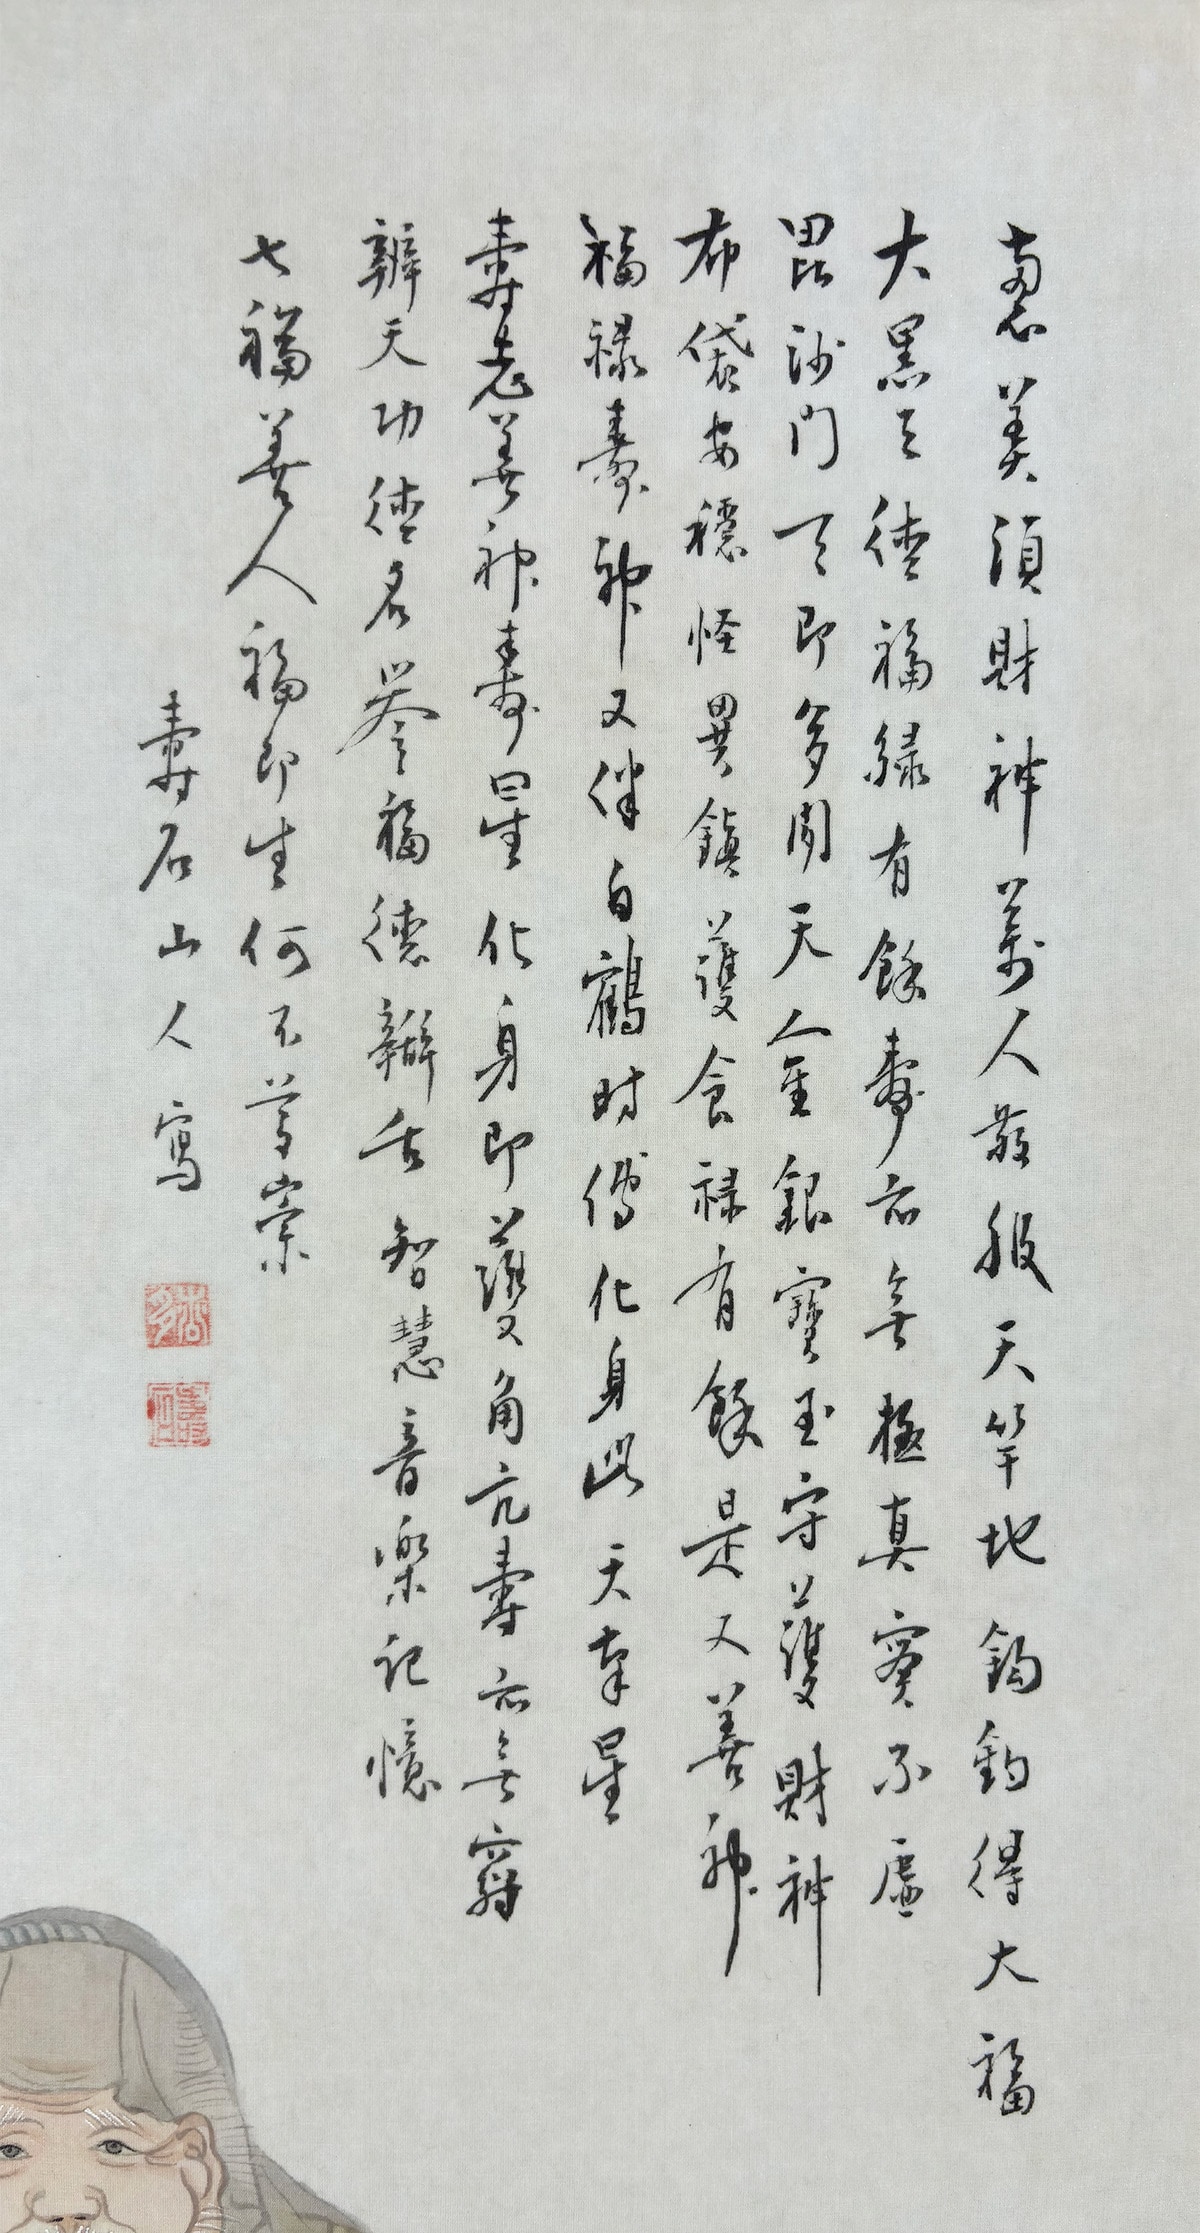 惠美須財神萬人敬服天竿地鈎釣得大福
大黑天德福緑有餘壽亦無極真實不虛
毘沙門天即多聞天金銀寶玉守護財神
布袋安穩怪異鎮護食祿有餘是又善神
福祿壽神又伴白鶴時傳化身此天南星
壽老善神壽星化身即護角亢壽亦無窮
辨天功德名譽福德辯舌智慧音樂記憶
七福善人福即生何不尊崇
壽石山人寫